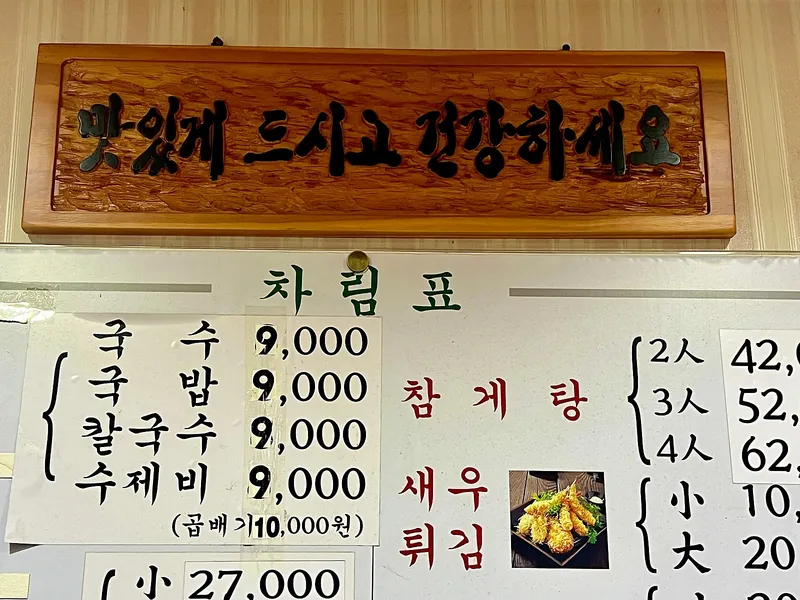 맛있게 드시고 건강하세요
차림표
국수 9,000
국밥 9,000
칼국수 9,000
수제비 9,000
(곱배기10,000원)
小 27,000
참게탕
2人 42,
3人 52,
4人 62,
새우
튀김
小 10,
大 20